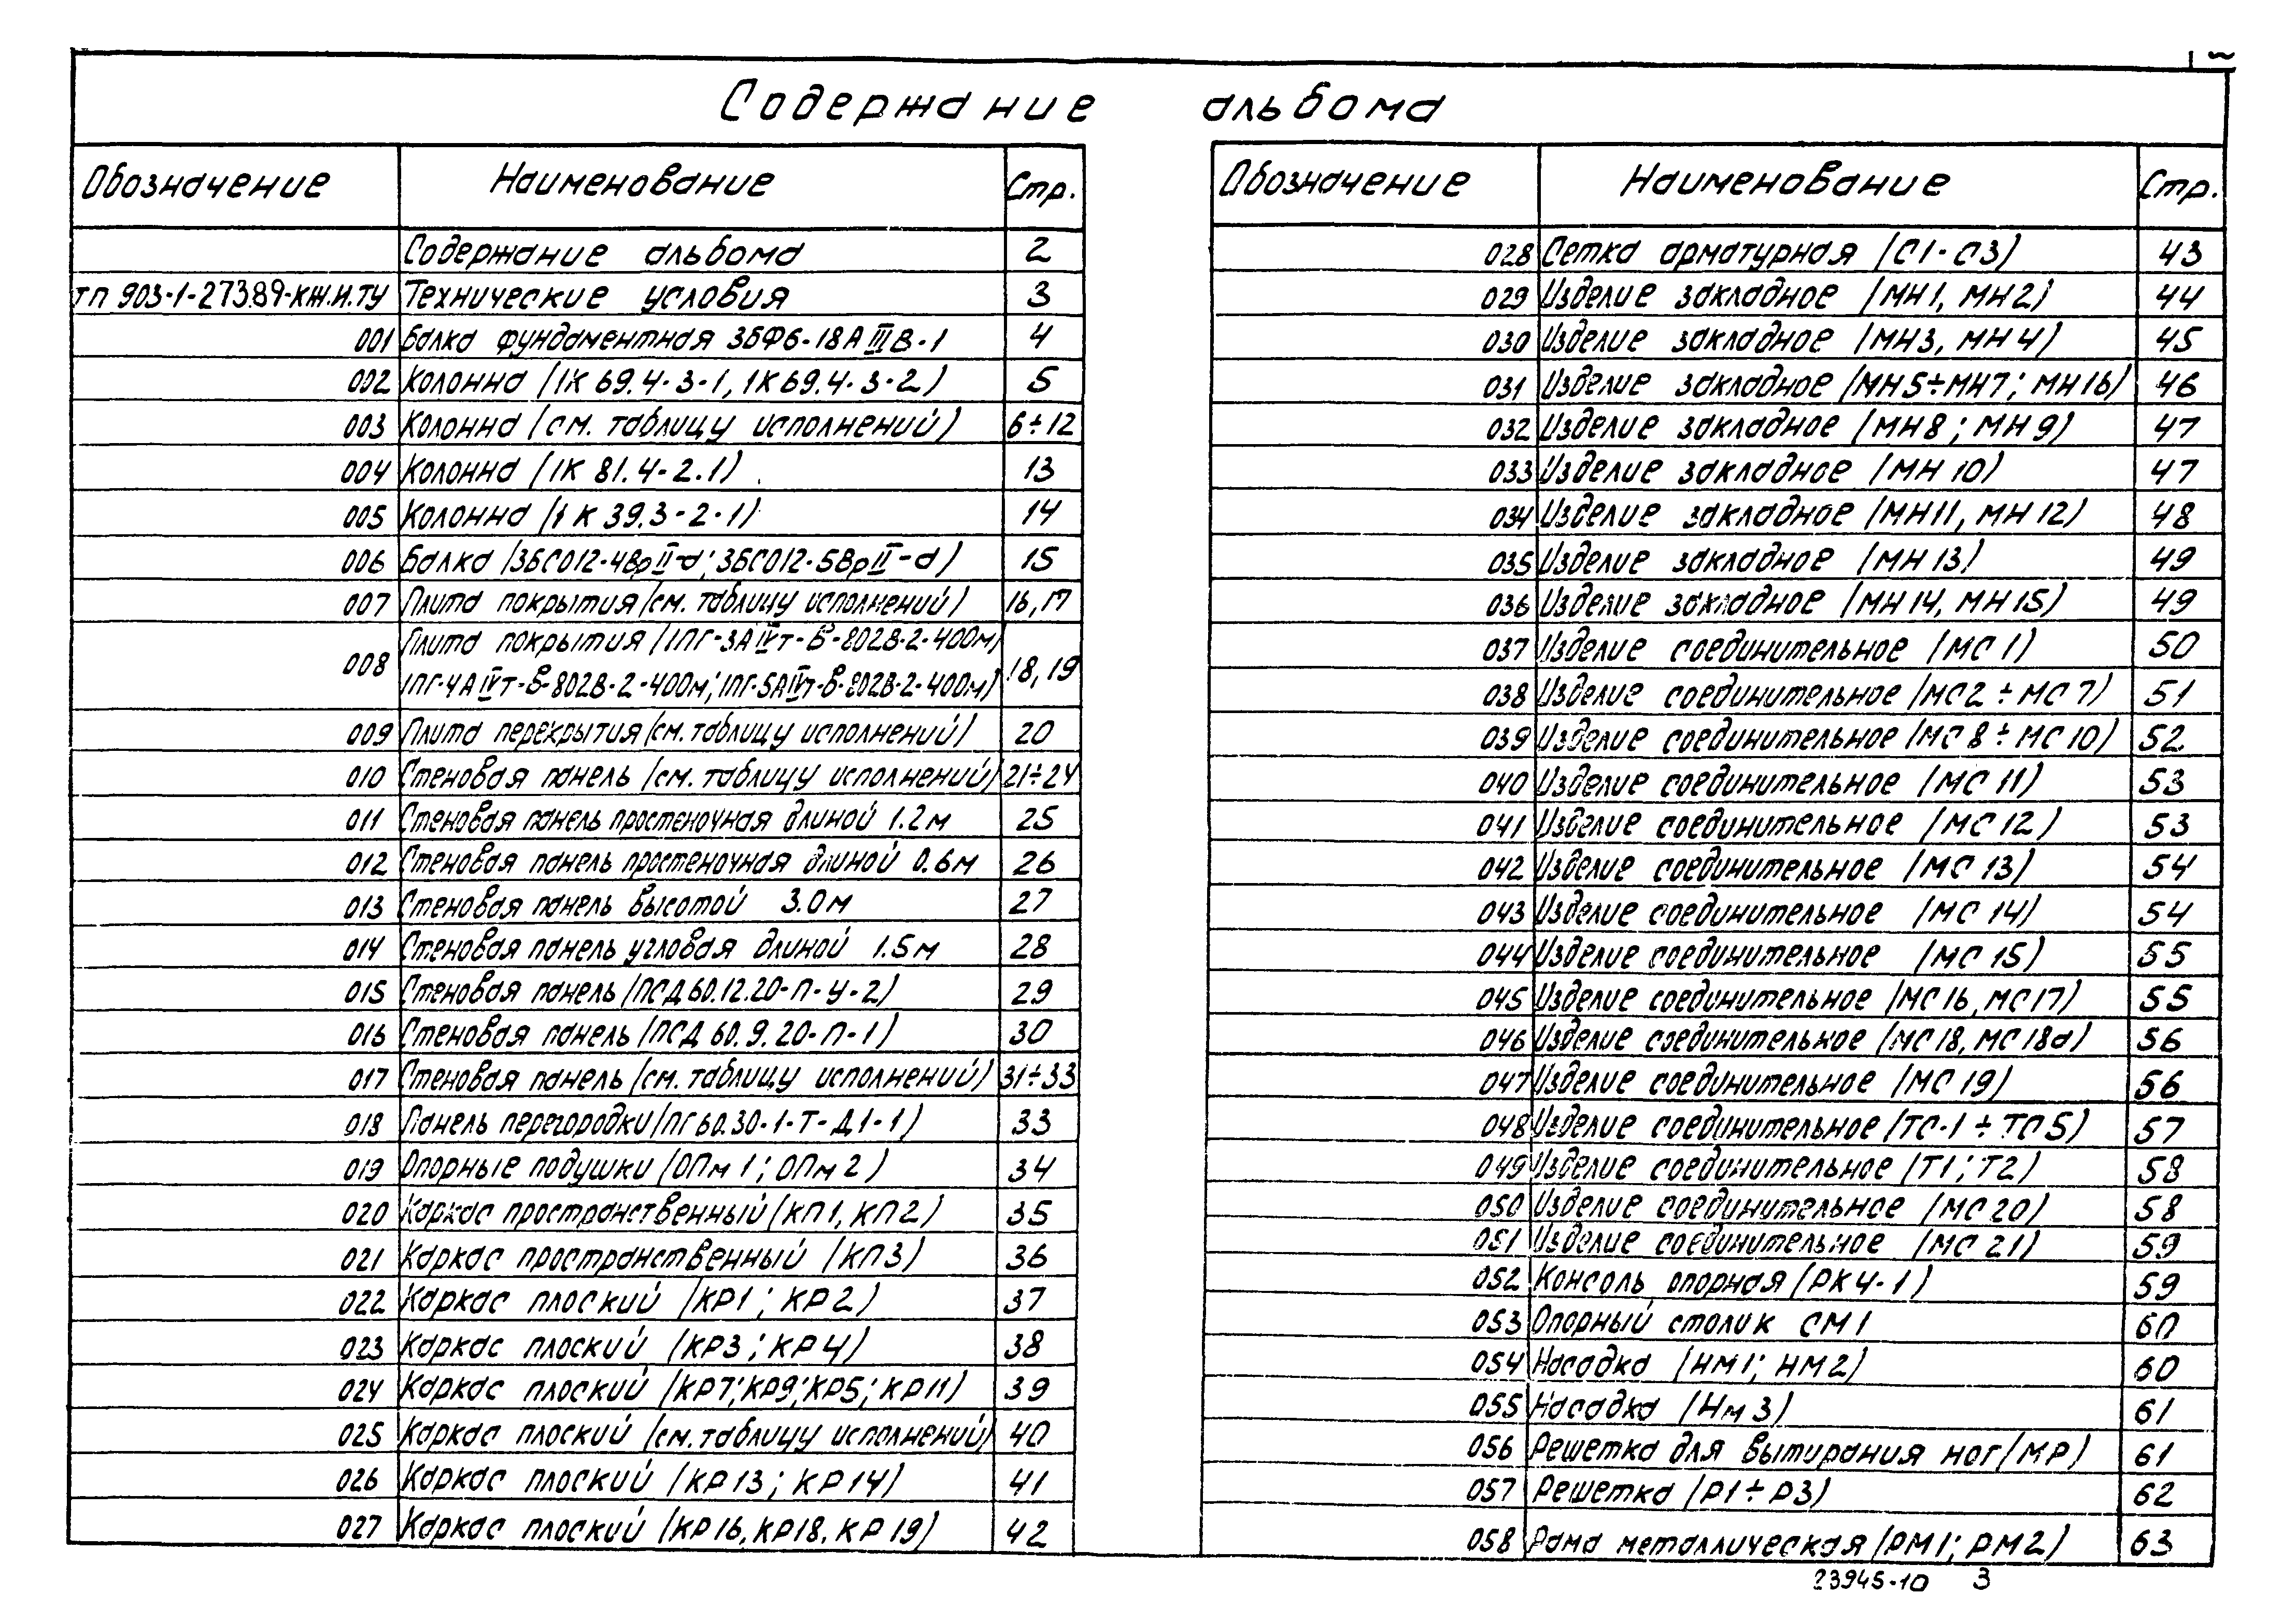 Содержание альбома
Обозначение Наименование Стр.
Содержание альбома 2
ТП 903-1-273.89-КЖ.И.ТУ Технические условия 3
001 Балка фундаментная 3БФ6-18АIIIВ-1 4
002 Колонна (1К 69.4-3-1, 1К69.4-3-2) 5
003 Колонна (см. таблицу исполнений) 6÷12
004 Колонна (1К 81.4-2.1) 13
005 Колонна (1К 39.3-2-1) 14
006 Балка (3БСО12-4ВрII-а; 3БСО12-5ВрII-а) 15
007 Плита покрытия (см. таблицу исполнений) 16,17
008 Плита покрытия (1ПГ-3АIVт-В-802В-2-400м;
1ПГ-4АIVт-В-802В-2-400м; 1ПГ-5АIVт-В-802В-2-400м) 18,19
009 Плита перекрытия (см. таблицу исполнений) 20
010 Стеновая панель (см. таблицу исполнений) 21÷24
011 Стеновая панель простеночная длиной 1.2м 25
012 Стеновая панель простеночная длиной 0.6м 26
013 Стеновая панель высотой 3.0м 27
014 Стеновая панель угловая длиной 1.5м 28
015 Стеновая панель (ПСД60.12.20-П-У-2) 29
016 Стеновая панель (ПСД 60.9.20-П-1) 30
017 Стеновая панель (см. таблицу исполнений) 31÷33
018 Панель перегородки (ПГ60.30-1-Т-Д1-1) 33
019 Опорные подушки (ОПм1; ОПм2) 34
020 Каркас пространственный (КП1, КП2) 35
021 Каркас пространственный (КП3) 36
022 Каркас плоский (КР1; КР2) 37
023 Каркас плоский (КР3; КР4) 38
024 Каркас плоский (КР7; КР9; КР5; КР11) 39
025 Каркас плоский (см. таблицу исполнений) 40
026 Каркас плоский (КР13; КР14) 41
027 Каркас плоский (КР16, КР18, КР19) 42
Обозначение Наименование Стр.
028 Сетка арматурная (С1-С3) 43
029 Изделие закладное (МН1, МН2) 44
030 Изделие закладное (МН3, МН4) 45
031 Изделие закладное (МН5÷МН7; МН16) 46
032 Изделие закладное (МН8; МН9) 47
033 Изделие закладное (МН10) 47
034 Изделие закладное (МН11, МН12) 48
035 Изделие закладное (МН13) 49
036 Изделие закладное (МН14, МН15) 49
037 Изделие соединительное (МС1) 50
038 Изделие соединительное (МС2 ÷ МС7) 51
039 Изделие соединительное (МС8 ÷ МС10) 52
040 Изделие соединительное (МС11) 53
041 Изделие соединительное (МС12) 53
042 Изделие соединительное (МС13) 54
043 Изделие соединительное (МС14) 54
044 Изделие соединительное (МС15) 55
045 Изделие соединительное (МС16, МС17) 55
046 Изделие соединительное (МС18, МС18а) 56
047 Изделие соединительное (МС19) 56
048 Изделие соединительное (ТС-1 ÷ ТС5) 57
049 Изделие соединительное (Т1; Т2) 58
050 Изделие соединительное (МС20) 58
051 Изделие соединительное (МС21) 59
052 Консоль опорная (РК4-1) 59
053 Опорный столик СМ1 60
054 Насадка (НМ1; НМ2) 60
055 Насадка (Нм3) 61
056 Решетка для вытирания ног (МР) 61
057 Решетка (Р1÷Р3) 62
058 Рама металлическая (РМ1; РМ2) 63
23945-10 3